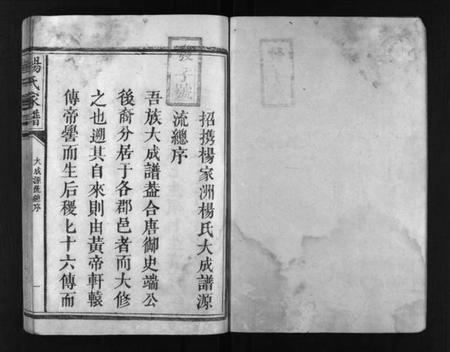 招携楊家洲楊氏大成譜源
流總序
吾族大成譜葢合唐御史端公
後裔分居于各郡邑者而大修
之也遡其自來則由黃帝軒轅
傳帝嚳而生后稷七十六傳而
楊氏家譜
大成源流總序
一